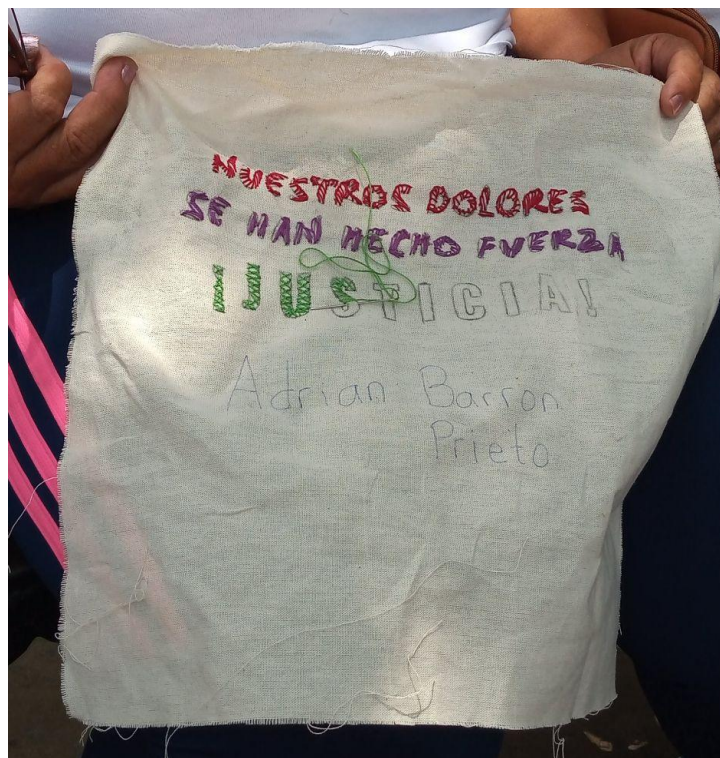 NUESTROS DOLORES
SE HAN HECHO FUERZA
¡JUSTICIA!
Adrian Barron
Prieto